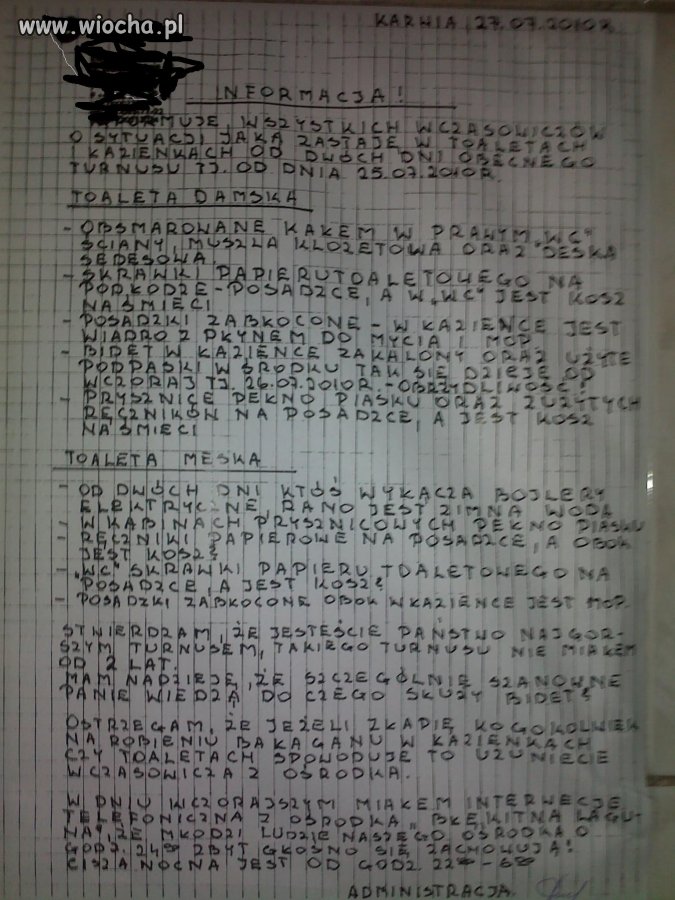 www.wiocha.pl
KARWIA, 27.07.2010R.
INFORMACJA!
INFORMUJE WSZYSTKICH WCZASOWICZÓW
O SYTUACJI JAKĄ ZASTAJĘ W TOALETACH
I ŁAZIENKACH OD DWÓCH DNI OBECNEGO
TURNUSU TJ. OD DNIA 25.07.2010R.
TOALETA DAMSKA
- OBSMAROWANE KAŁEM W PRAWYM „WC"
ŚCIANY, MUSZLA KLOZETOWA ORAZ DESKA
SEDESOWA.
- SKRAWKI PAPIERU TOALETOWEGO NA
PODŁODZE-POSADZCE, A W „WC" JEST KOSZ
NA ŚMIECI
- POSADZKI ZABŁOCONE - W ŁAZIENCE JEST
WIADRO Z PŁYNEM DO MYCIA I MOP.
- BIDET W ŁAZIENCE ZAKALONY ORAZ UŻYTE
PODPASKI W ŚRODKU TAK SIĘ DZIEJE OD
WCZORAJ TJ. 26.07.2010R. - OBRZYDLIWOŚĆ!
- PRYSZNICE PEŁNO PIASKU ORAZ ZUŻYTYCH
RĘCZNIKÓW NA POSADZCE, A JEST KOSZ
NA ŚMIECI
TOALETA MĘSKA
- OD DWÓCH DNI KTOŚ WYŁĄCZA BOJLERY
ELEKTRYCZNE, RANO JEST ZIMNA WODA
- W KABINACH PRYSZNICOWYCH PEŁNO PIASKU
- RĘCZNIKI PAPIEROWE NA POSADZCE, A OBOK
JEST KOSZ?
- „WC" SKRAWKI PAPIERU TOALETOWEGO NA
POSADZCE, A JEST KOSZ?
- POSADZKI ZABŁOCONE OBOK W ŁAZIENCE JEST MOP.
STWIERDZAM, ŻE JESTEŚCIE PAŃSTWO NAJGOR-
SZYM TURNUSEM, TAKIEGO TURNUSU NIE MIAŁEM
OD 2 LAT.
MAM NADZIEJĘ, ŻE SZCZEGÓLNIE SZANOWNE
PANIE WIEDZĄ DO CZEGO SŁUŻY BIDET?
OSTRZEGAM, ŻE JEŻELI ZŁAPIĘ KOGOKOLWIEK
NA ROBIENIU BAŁAGANU W ŁAZIENKACH
CZY TOALETACH SPOWODUJE TO USUNIĘCIE
WCZASOWICZA Z OŚRODKA.
W DNIU WCZORAJSZYM MIAŁEM INTERWECJE
TELEFONICZNA Z OŚRODKA „BŁĘKITNA LAGU-
NA", ŻE MŁODZI LUDZIE NASZEGO OŚRODKA O
GODZ. 24⁰⁰ ZBYT GŁOŚNO SIĘ ZACHOWUJĄ!
CISZA NOCNA JEST OD GODZ. 22⁰⁰ - 6⁰⁰
ADMINISTRACJA.